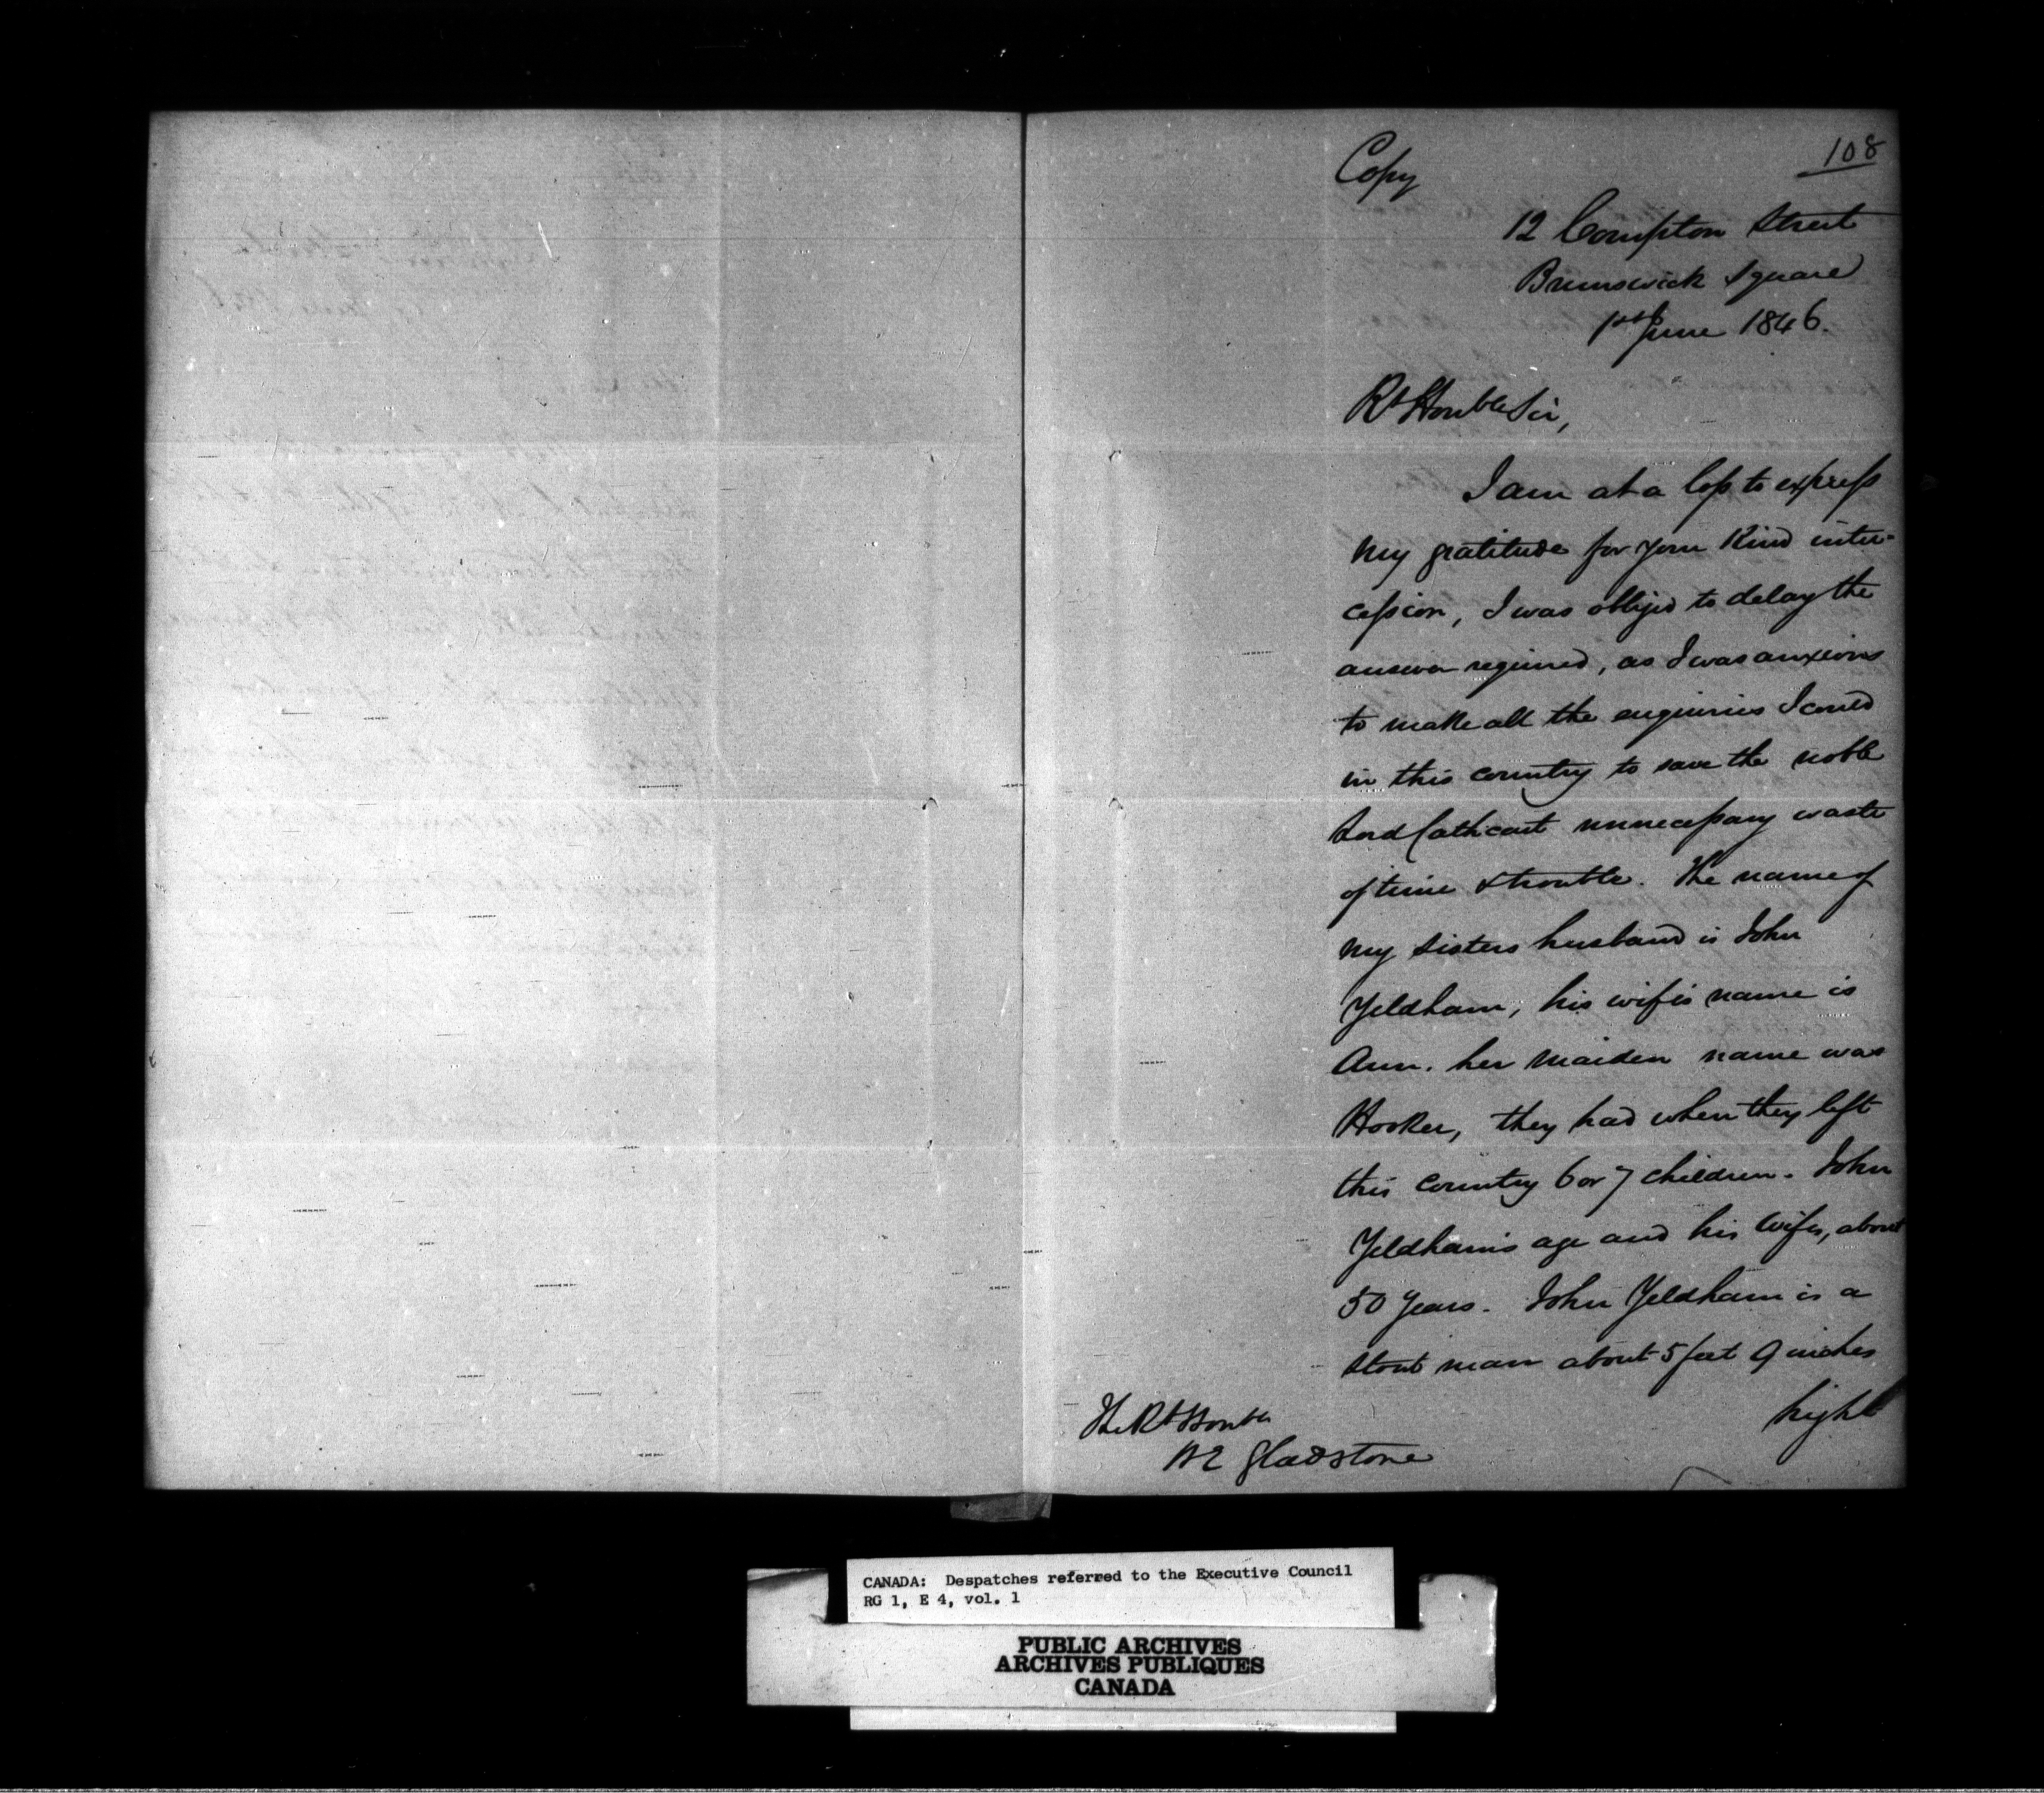 108
Copy
12 Compton Street
Brunswick Square
1st June 1846.
Rt Honble Sir,
I am at a loss to express
my gratitude for your kind inter-
cession, I was obliged to delay the
answer required, as I was anxious
to make all the enquiries I could
in this country to save the noble
Lord Cathcart unnecessary waste
of time & trouble. The name of
my sisters husband is John
Yeldham, his wife's name is
Ann. her maiden name was
Hooker, they had when they left
this country 6 or 7 children. John
Yeldham's age and his wifes, about
50 years. John Yeldham is a
stout man about 5 feet 9 inches
high
The Rt Honble
W E Gladstone
CANADA: Despatches referred to the Executive Council
RG 1, E 4, vol. 1
PUBLIC ARCHIVES
ARCHIVES PUBLIQUES
CANADA